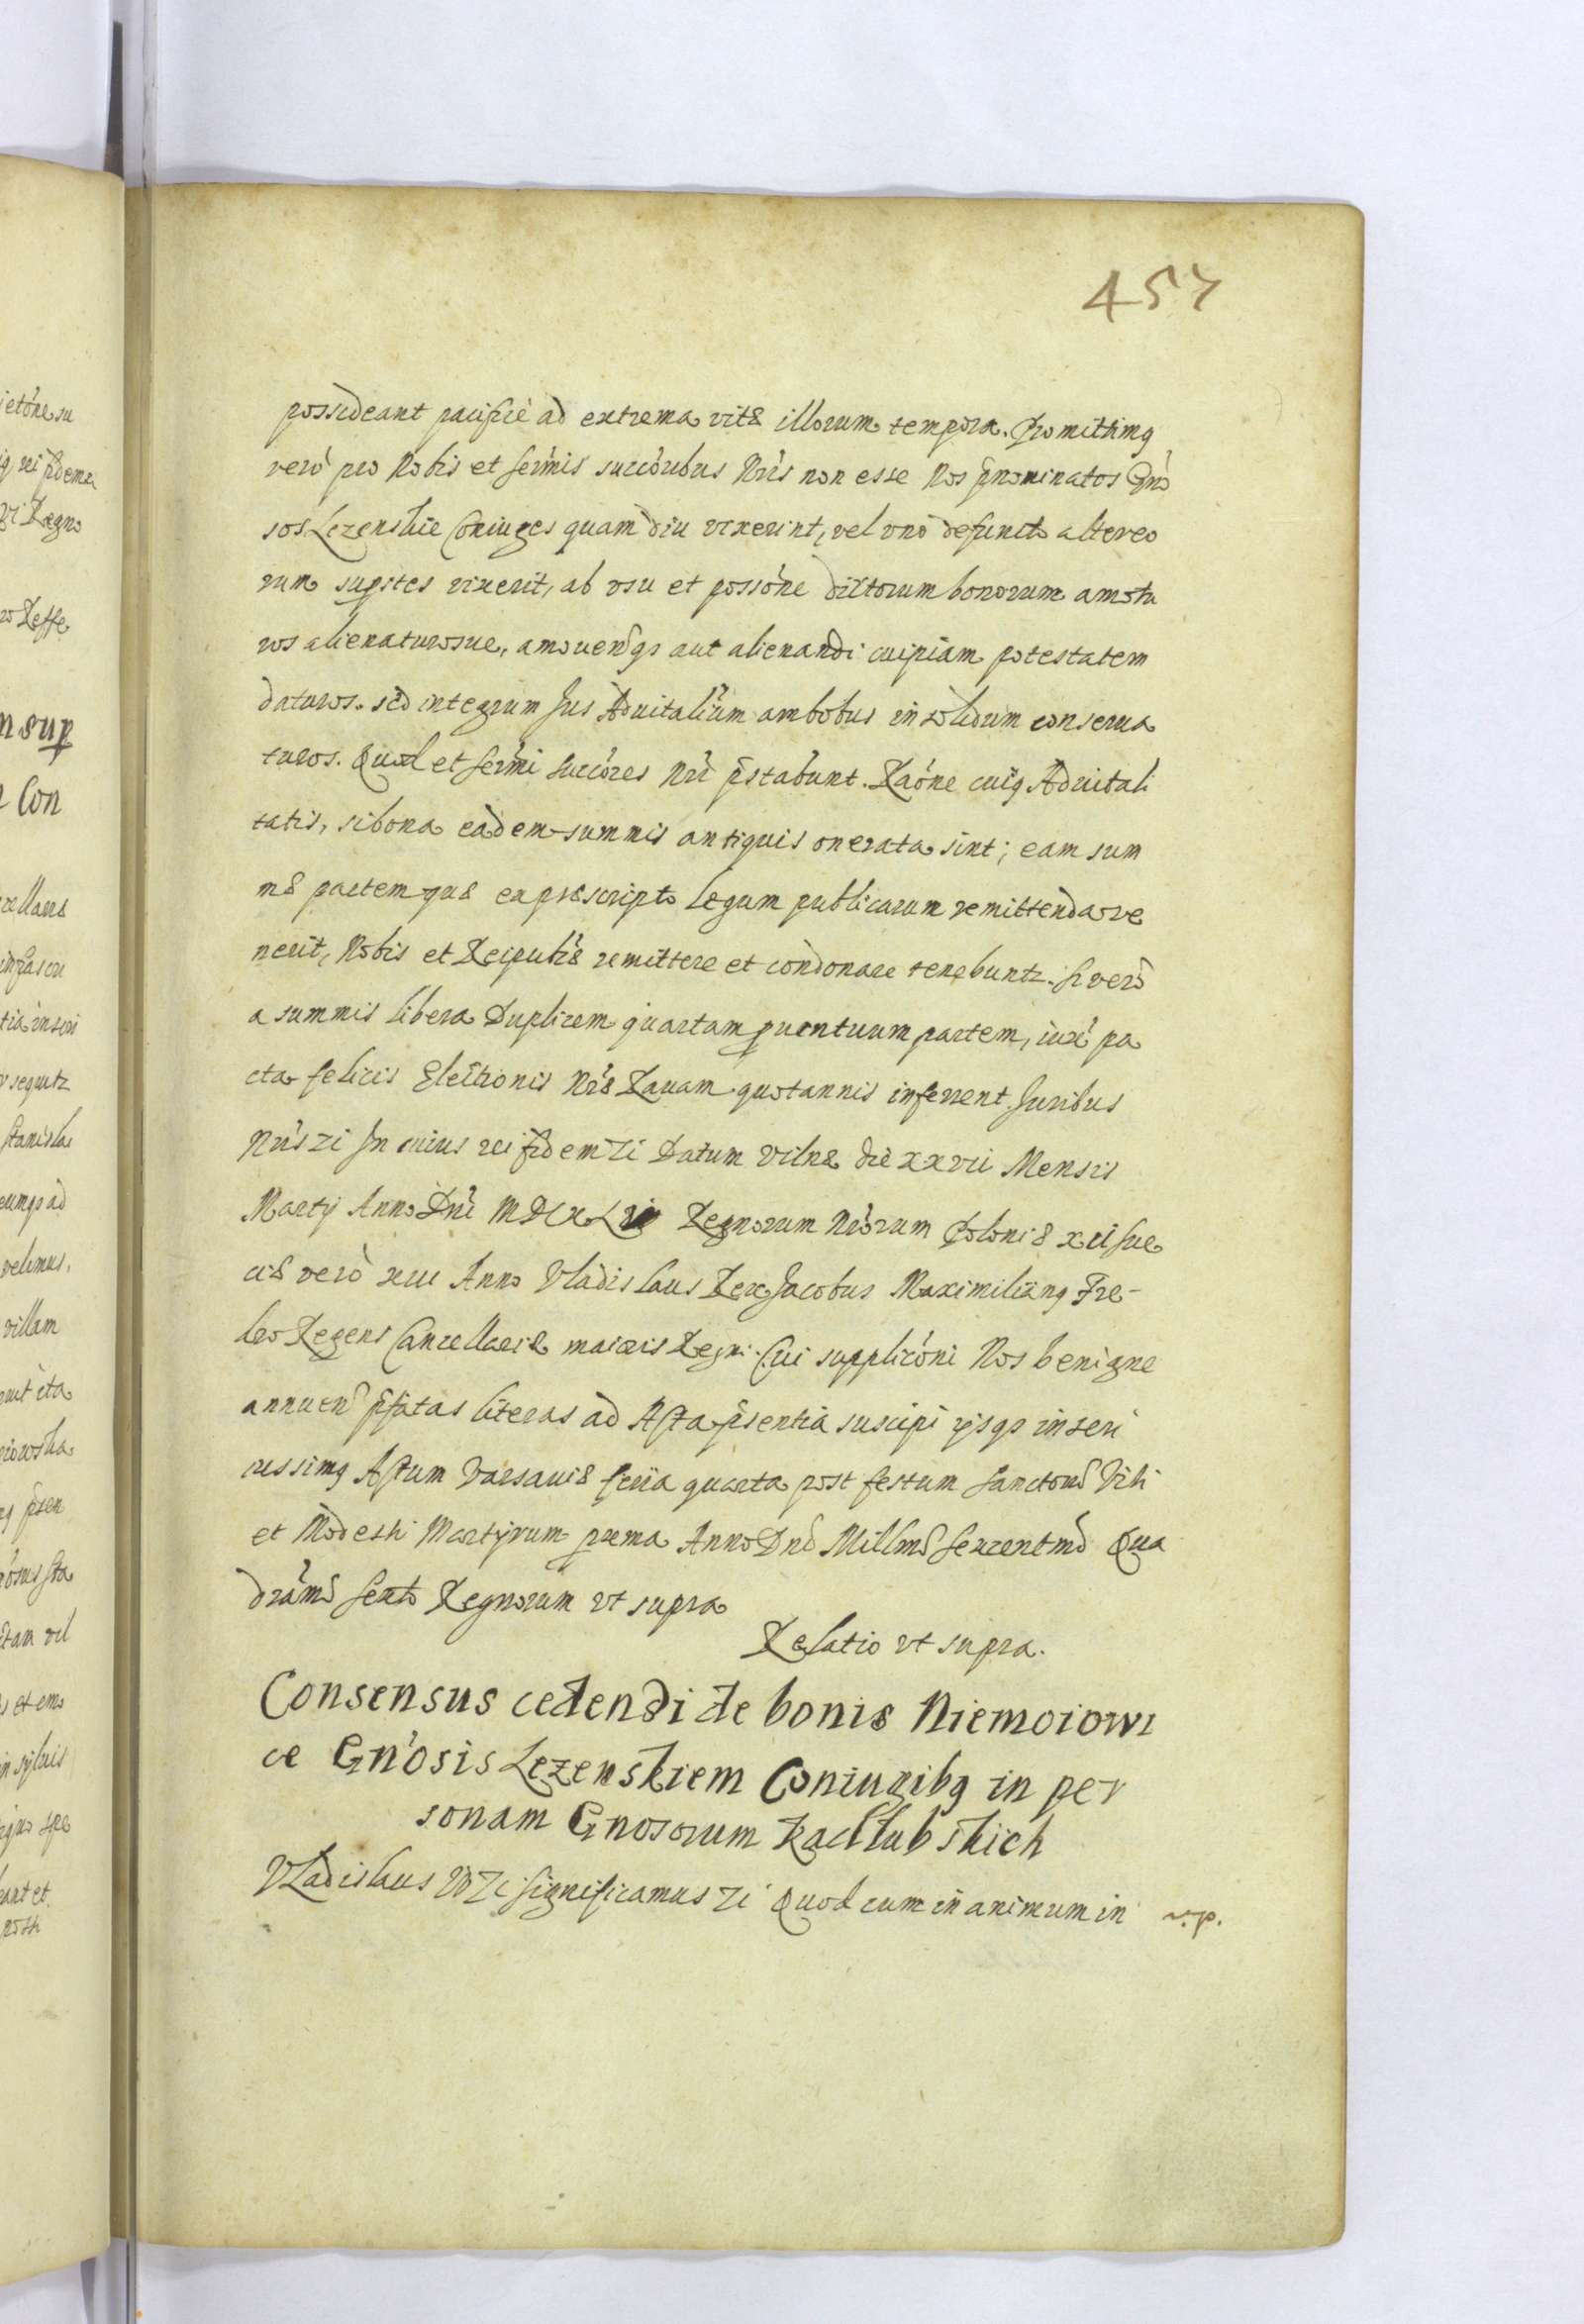 457
possideant pacificè ad extrema vitæ illorum tempora. Promittimq
verò pro Nobis et Ser̃mis succ̃oribus Nr̃is non esse Nos p̃nominatos Gn̄o
sos Lezenskie Coniuges quam diu vixerint, vel unò defuncto altereo
rum sup̱stes vixerit, ab usu et poss̃one dictorum bonorum amotu
ros alienaturosue, amouendiqȝ aut alienandi cuipiam potestatem
daturos. sed integrum Jus Aduitalium ambobus in solidum conserua
turos. Quod et Ser̃mi Succ̃ores Nr̃i p̃stabunt. Ra͠one cuiq Aduitali
tatis, si bona eadem summis antiquis onerata sint; eam sum
mæ partem quæ ex præscripto Legum publicarum remittenda ve
nerit, Nobis et Reipubl̃æ remittere et condonare tenebuntr. Si verò
a summis libera Duplicem quartam ꝓuentuum partem, iux̃ pa
cta felicis Electionis Nr̃æ Rauam quotannis inferrent. Juribus
Nr̃is Zc̃ In cuius rei fidem Zc̃ Datum Vilnæ die XXVII Mensis
Martij Anno Dn̄i MDCXLVI Regnorum Nr̃orum Poloniæ XIII Sue
ciæ verò XIIII Anno Vladislaus Rex Jacobus Maximilianq Fre-
dro Regens Cancellariæ maioris Regni. Cui supplic̃oni Nos benigne
annuen̄ p̃fatas literas ad Acta p̃sentia suscipi ijsqȝ inseri
iussimq Actum Varsauiæ feria quarta post festum Sanctorũ Viti
et Modesti Martyrum ꝓxima Anno Dn̄i Mill̃mõ Sexcentmõ Qua
drãmõ Sexto Regnorum ut supra
Relatio ut supra.
Consensus cedendi de bonis Niemoiowi
ce Gn̄osis Lezenskiem Coniugibq in per
sonam Gnosorum Kadłubskich
Vladislaus IV Zc̃ Significamus Zc̃ Quod cum in animum in v.p.